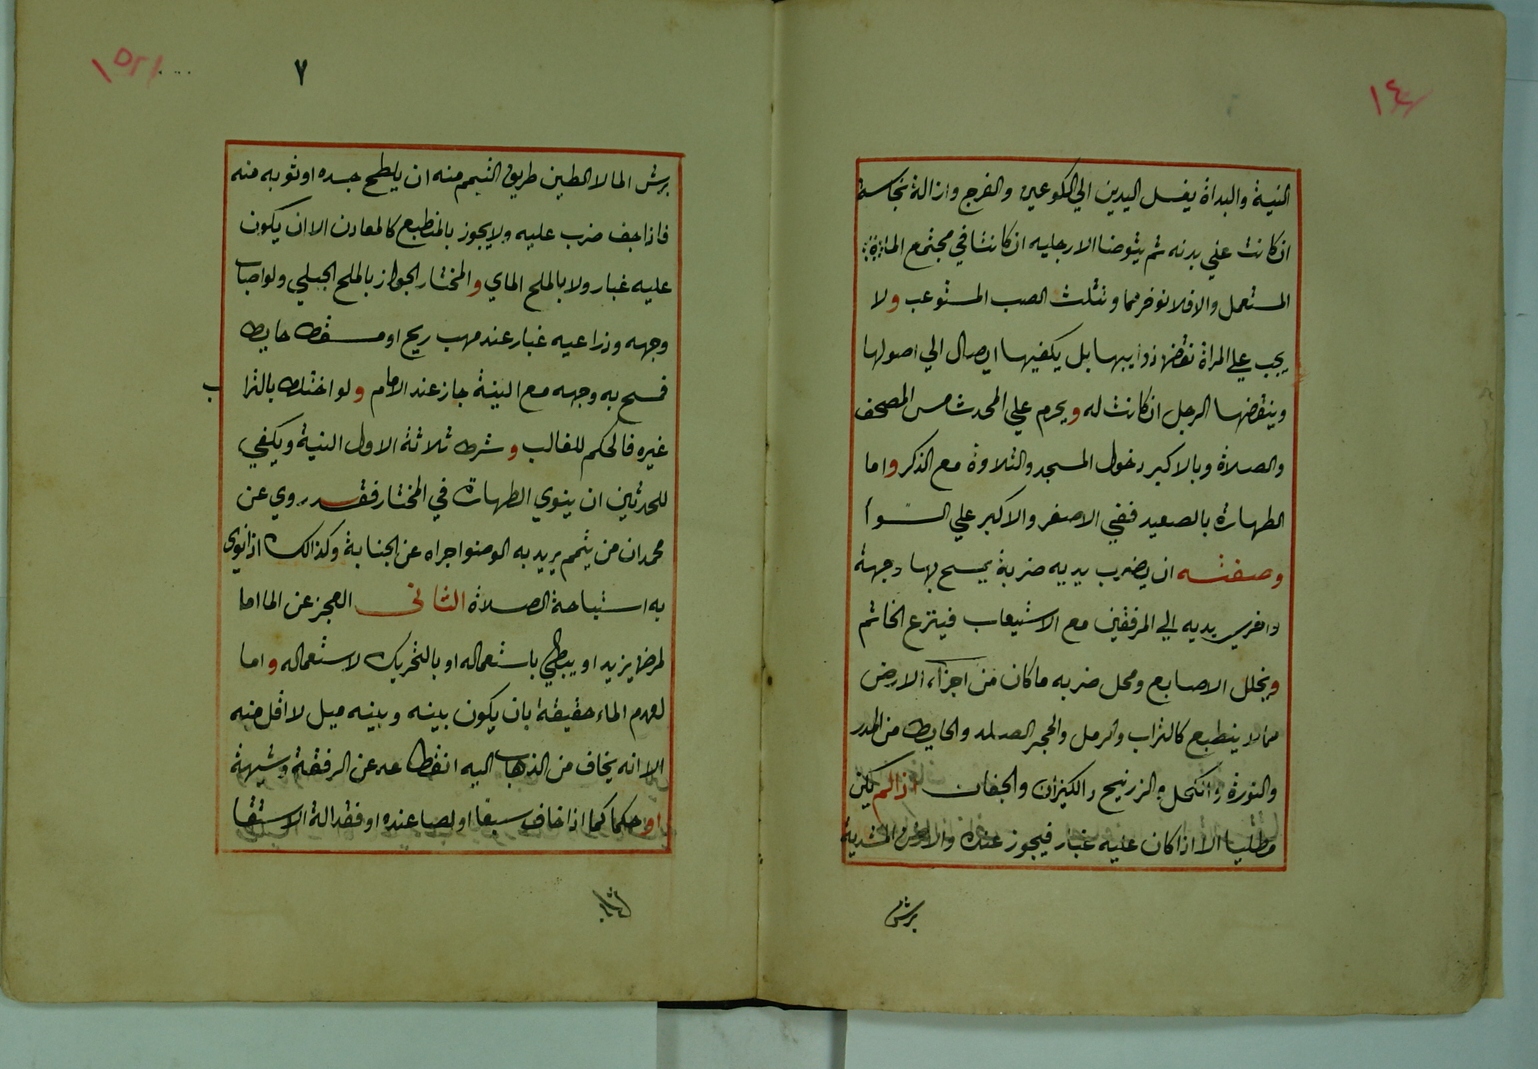 ١٤
النية والبداة بغسل اليدين الي الكوعين والفرج وازالة نجاسة
ان كانت علي بدنه ثم يتوضا الا رجليه ان كانتا في مجتمع الماء
المستعمل والا فلا توخرهما وتثلث الصب المستوعب ولا
يجب علي المراة نقض ذوايبها بل يكفيها ايصال الي اصولها
وينقضها الرجل ان كانت له ويحرم علي المحدث مس المصحف
والصلاة وبالاكبر دخول المسجد والتلاوة مع الذكر واما
الطهارة بالصعيد ففي الاصغر والاكبر علي السوا
وصفته ان يضرب بيديه ضربة يمسح بها وجهه
واخري يديه الي المرفقين مع الاستيعاب فينزع الخاتم
ويخلل الاصابع ومحل ضربه ما كان من اجزاء الارض
مما لا ينطبع كالتراب والرمل والحجر الصلد والحايط من المدر
والنورة والكحل والزرنيخ والكيزان والجفان اذا لم تكن
مطليا الا اذا كان عليه غبار فيجوز عنده والارض الندية
برش
١٥
٧
برش الما لا الطين طريق التيمم منه ان يلطخ جسده او ثوبه منه
فاذا جف ضرب عليه ولا يجوز بالمنطبع كالمعادن الا ان يكون
عليه غبار ولا بالملح الماي والمختار الجواز بالملح الجبلي ولو اصاب
وجهه وذراعيه غبار عند مهب ريح او مسقط حايط
فمسح به وجهه مع النية جاز عند الامام ولو اختلط بالترا ب
غيره فالحكم للغالب وشرطه ثلاثة الاول النية ويكفي
للحدثين ان ينوي الطهارة في المختار فقد روي عن
محمد ان من تيمم يريد به الوضوا جزاه عن الجنابة وكذلك اذا نوي
به استباحة الصلاة الثاني العجز عن الما اما
لمرض يزيد او يبطي باستعماله او بالتحريك لاستعماله واما
لعدم الماء حقيقة بان يكون بينه وبينه ميل لا اقل منه
الا انه يخاف من الذهاب اليه انقطاعه عن الرفقة وشبهه
او حكما كما اذا خاف سبعا او لصا عنده او فقد الة الاستقا